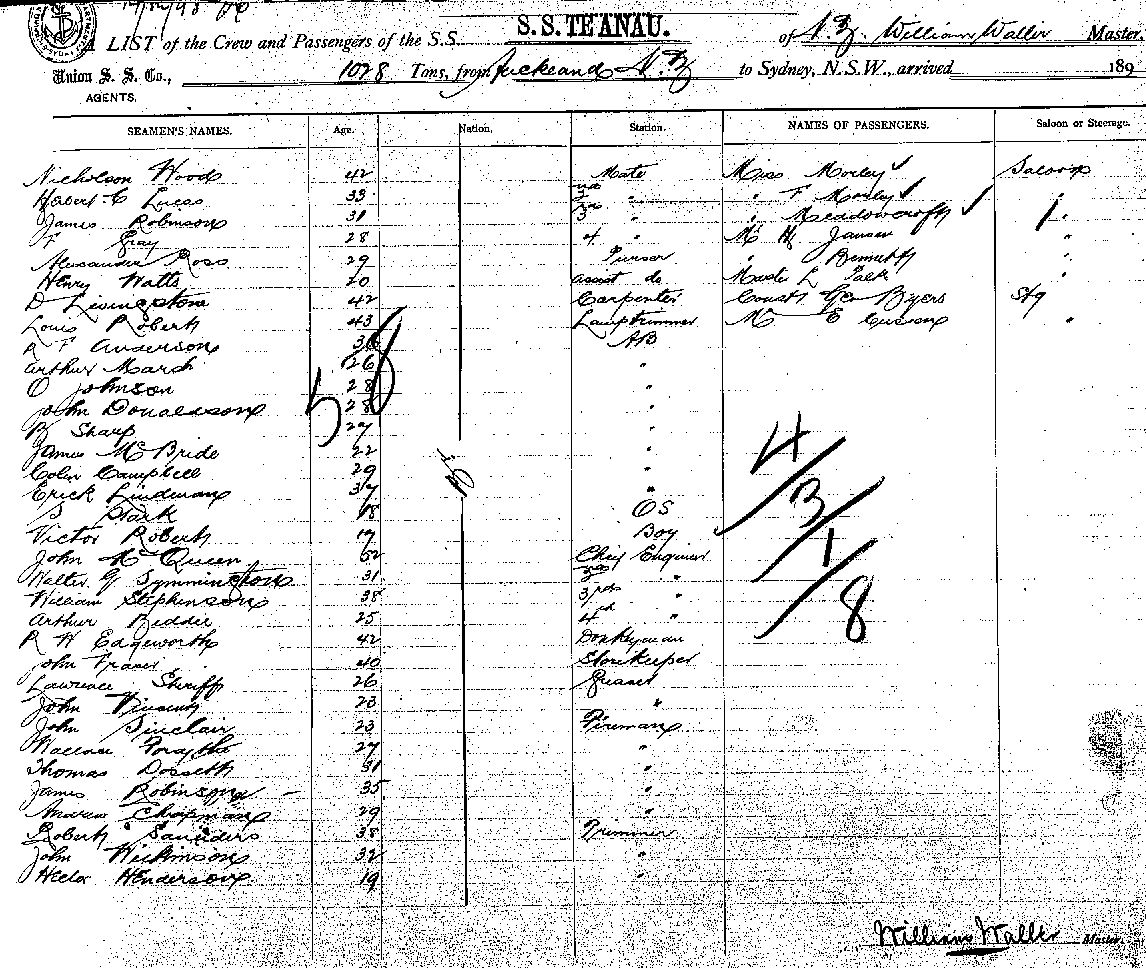 S.S. TE ANAU.
A LIST of the Crew and Passengers of the S.S. of N.Z. William Waller Master.
Union S. S. Co., 1028 Tons, from Auckland N.Z to Sydney, N.S.W., arrived 189
AGENTS.
SEAMEN'S NAMES. Age. Nation. Station. NAMES OF PASSENGERS. Saloon or Steerage.
Nicholson Wood 42 Mate Miss Morley ✓ Saloon
Hubert C Lucas 33 2nd " " F Morley ✓
James Robinson 31 3rd " " Meadowcroft ✓ "
F Gray 28 4 " M H Jansen "
Alexander Ross 29 Purser " Bennett "
Henry Watts 20 assist do Master L Falk "
D Livingstone 42 Carpenter Const Geo Byers Stg
Louis Robert 43 Lamptrimmer M E Cusson "
R F Anderson 36 AB
Arthur March 26 "
O Johnson 28 "
John Donaldson 28 "
Sharp 27 "
James McBride 22 "
Colin Campbell 29 "
Erick Lindman 37 "
S Stark 18 OS
Victor Robert 17 Boy
John McQueen 52 Chief Engineer
Walter G Symmington 31 2nd "
William Stephenson 38 3rd "
Arthur Biddie 25 4th "
R H Edgeworth 42 Donkeyman
John Fraser 40 Storekeeper
Lawrence Sheriff 26 Greaser
John 23 "
John Sinclair 23 Fireman
Wallace Forsyth 27 "
Thomas Dosseth 31 "
James Robinson 35 "
Andrew Chapman 29 "
Robert Saunders 38 Trimmer
John Wickinson 32 "
Henderson 19 "
58
4/3/1/8
William Waller Master.